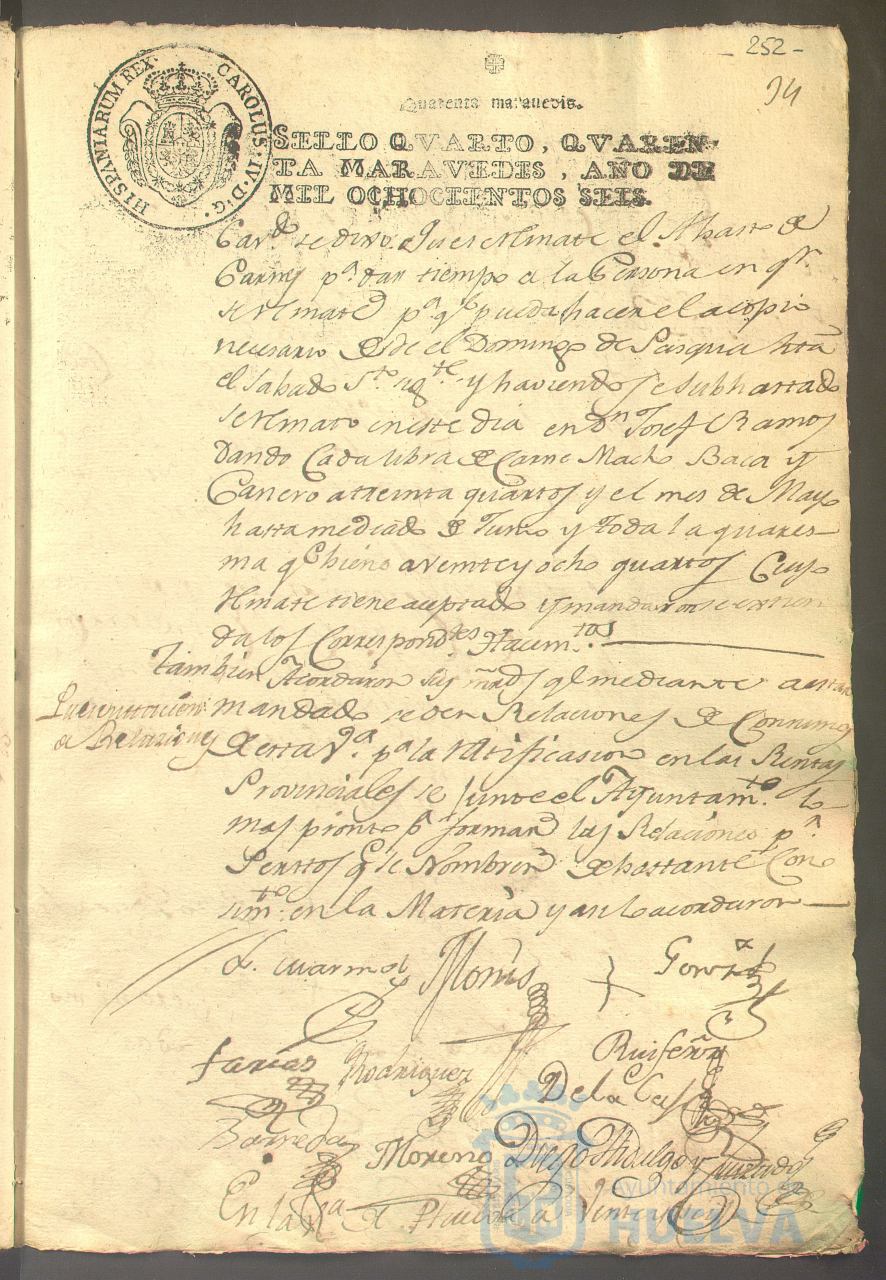 252
94
HISPANIARUM REX. CAROLUS. IV. D. G.
Quarenta maravedis.
SELLO QVARTO, QVAREN-
TA MARAVEDIS, AÑO DE
MIL OCHOCIENTOS SEIS.
se dixo que se rremate el Abasto de
Carnes pa. dar tiempo a la Persona en qn.
se rremate pa. qe. pueda hacer el acopio
necesario desde el Domingo de Pasqua hta
el Sabado Sto. sigte. y haviendose subhastado
se rremato en este dia en Dn. Josef Ramos
dando Cada libra de Carne Macho Baca y
Carnero a treinta quartos y el mes de Mayo
hasta mediado de Junio y toda la quares-
ma qe. biene a veinte y ocho quartos Cuyo
rremate tiene aceptado y mandaron se extien
da los Correspondtes. Hacemtos.
Tambien Acordaron sus mrds. qe. mediante a estar
Presentacion
de Relaziones
mandado se den Relaciones de Consumos
de esta Va. pa. la rratificasion en las Rentas
Provinciales se junte el Ayuntamto. lo
mas pronto pa. formar las Relaciones pr.
Peritos qe. se Nombren de bastante Con
simto. en la Materia y asi lo acordaron
Marmol
Monis
Farias
Rodriguez
Ruiseñor
De la Cassa
Barreda
Moreno
Diego Hidalgo y Hurtado
En la Va. de Huelva a Veinte y
Ayuntamiento de
HUELVA